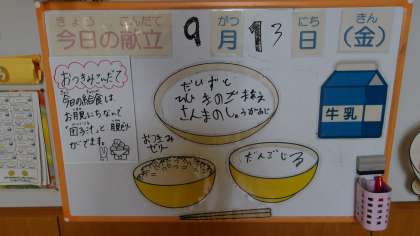 きょう こんだて がつ にち きん
今日の献立 9 月 13 日 (金)
おつきみこんだて
今日の給食は、
お月見にちなんで
「団子汁」と
ができます。
だいずと
ひじきのごま和え
さんまのしょうがに
おつきみ
ゼリー
だんごじる
牛乳